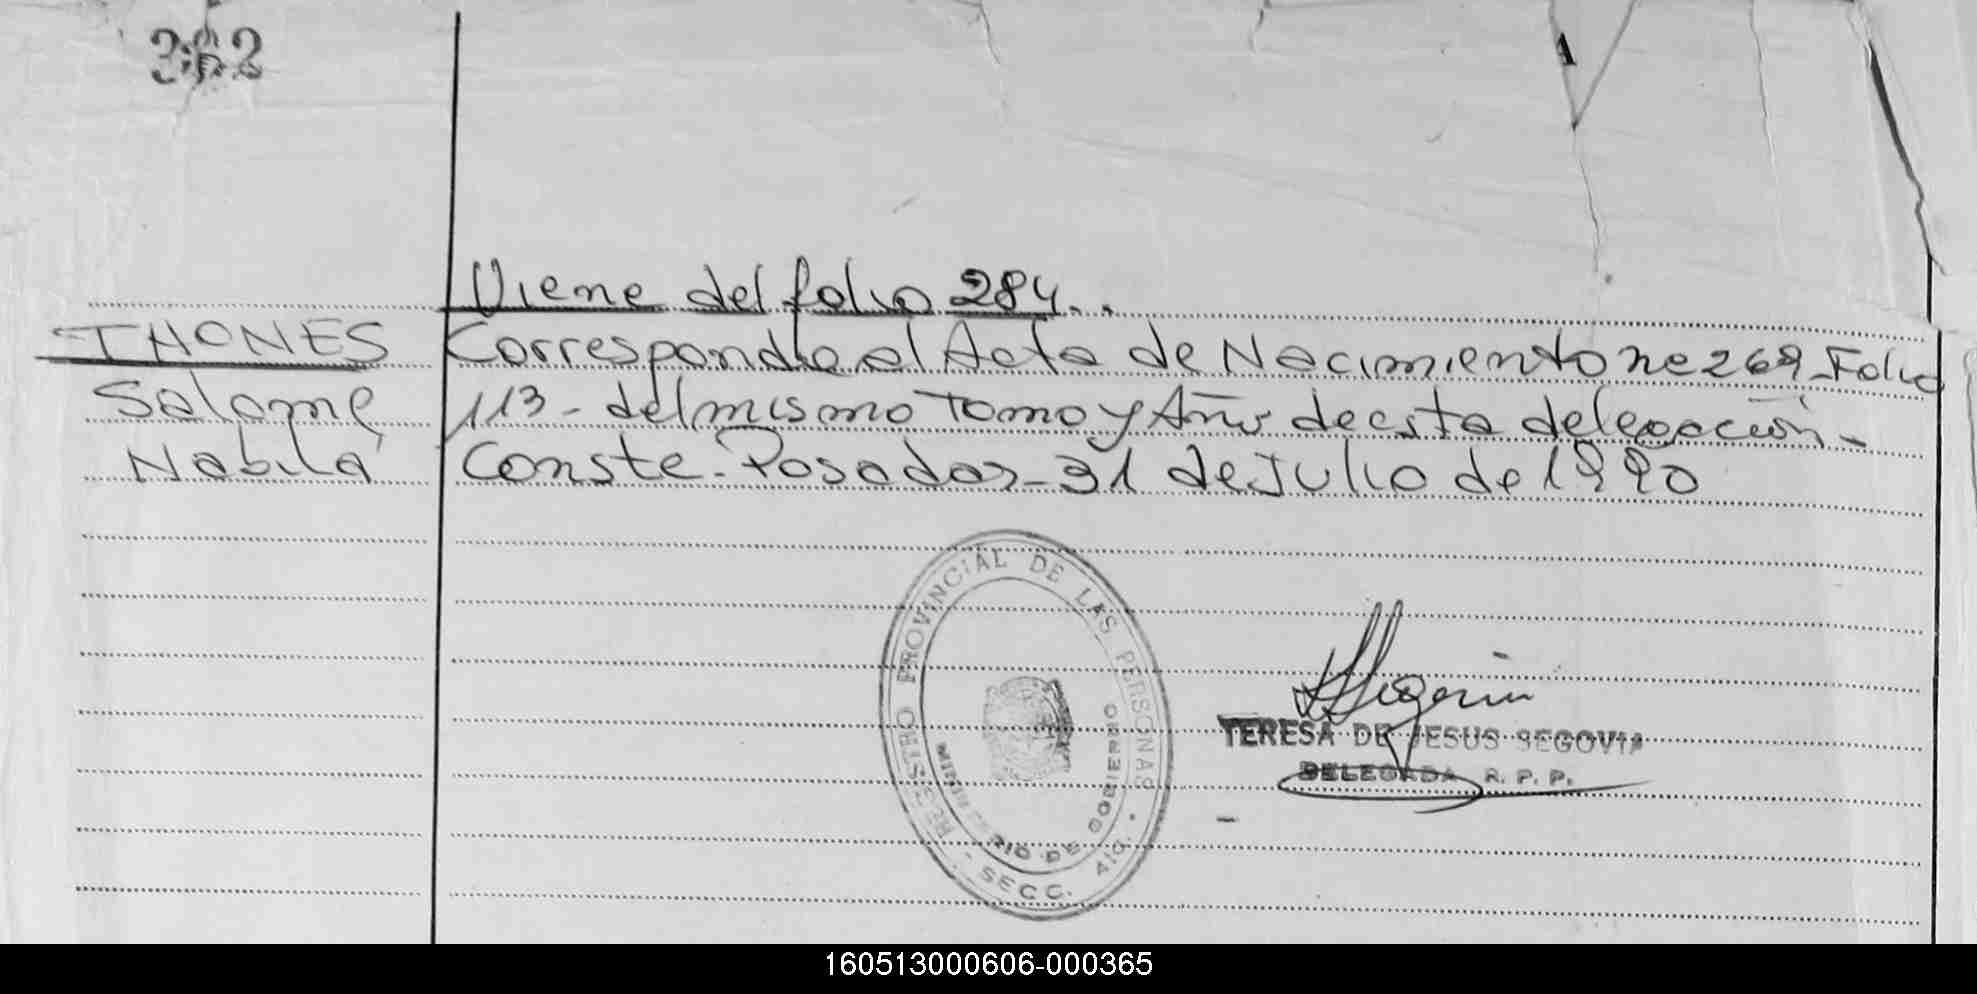 1
Viene del folio 284..
THONES
Salome
Nabila
Corresponde al Acta de Nacimiento ne 269 Folio
113 - del mismo Tomo y Año de esta delegación -
Conste - Posadas - 31 de Julio de 1990
REGISTRO PROVINCIAL DE LAS PERSONAS
MINISTERIO DE GOBIERNO
SECC.
TERESA DE JESUS SEGOVIA
DELEGADA R. P. P.
160513000606-000365